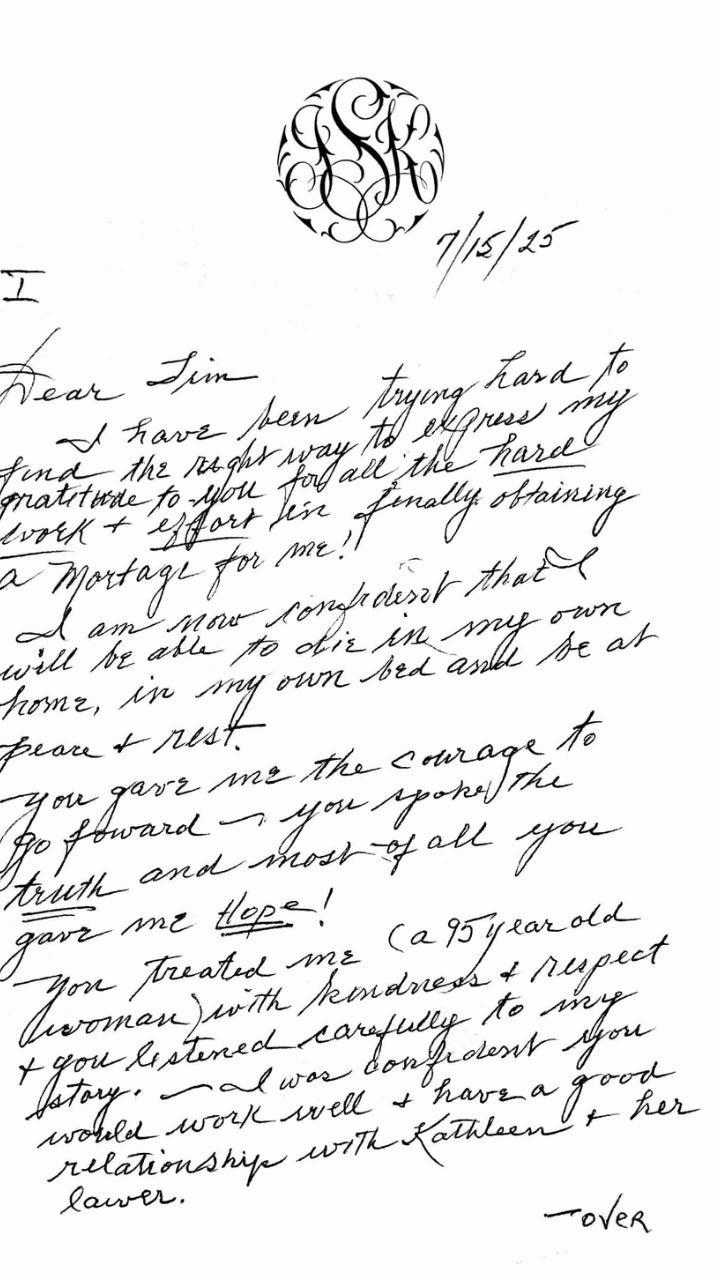 JSK
7/15/25
I
Dear Tim
I have been trying hard to
find the right way to express my
gratitude to you for all the hard
work + effort in finally obtaining
a Mortage for me!
I am now confident that I
will be able to die in my own
home, in my own bed and be at
peace + rest.
You gave me the courage to
go foward — you spoke the
truth and most of all you
gave me Hope!
You treated me (a 95 year old
woman) with kindness + respect
+ you listened carefully to my
story. — I was confident you
would work well + have a good
relationship with Kathleen + her
lawer.
— OVER